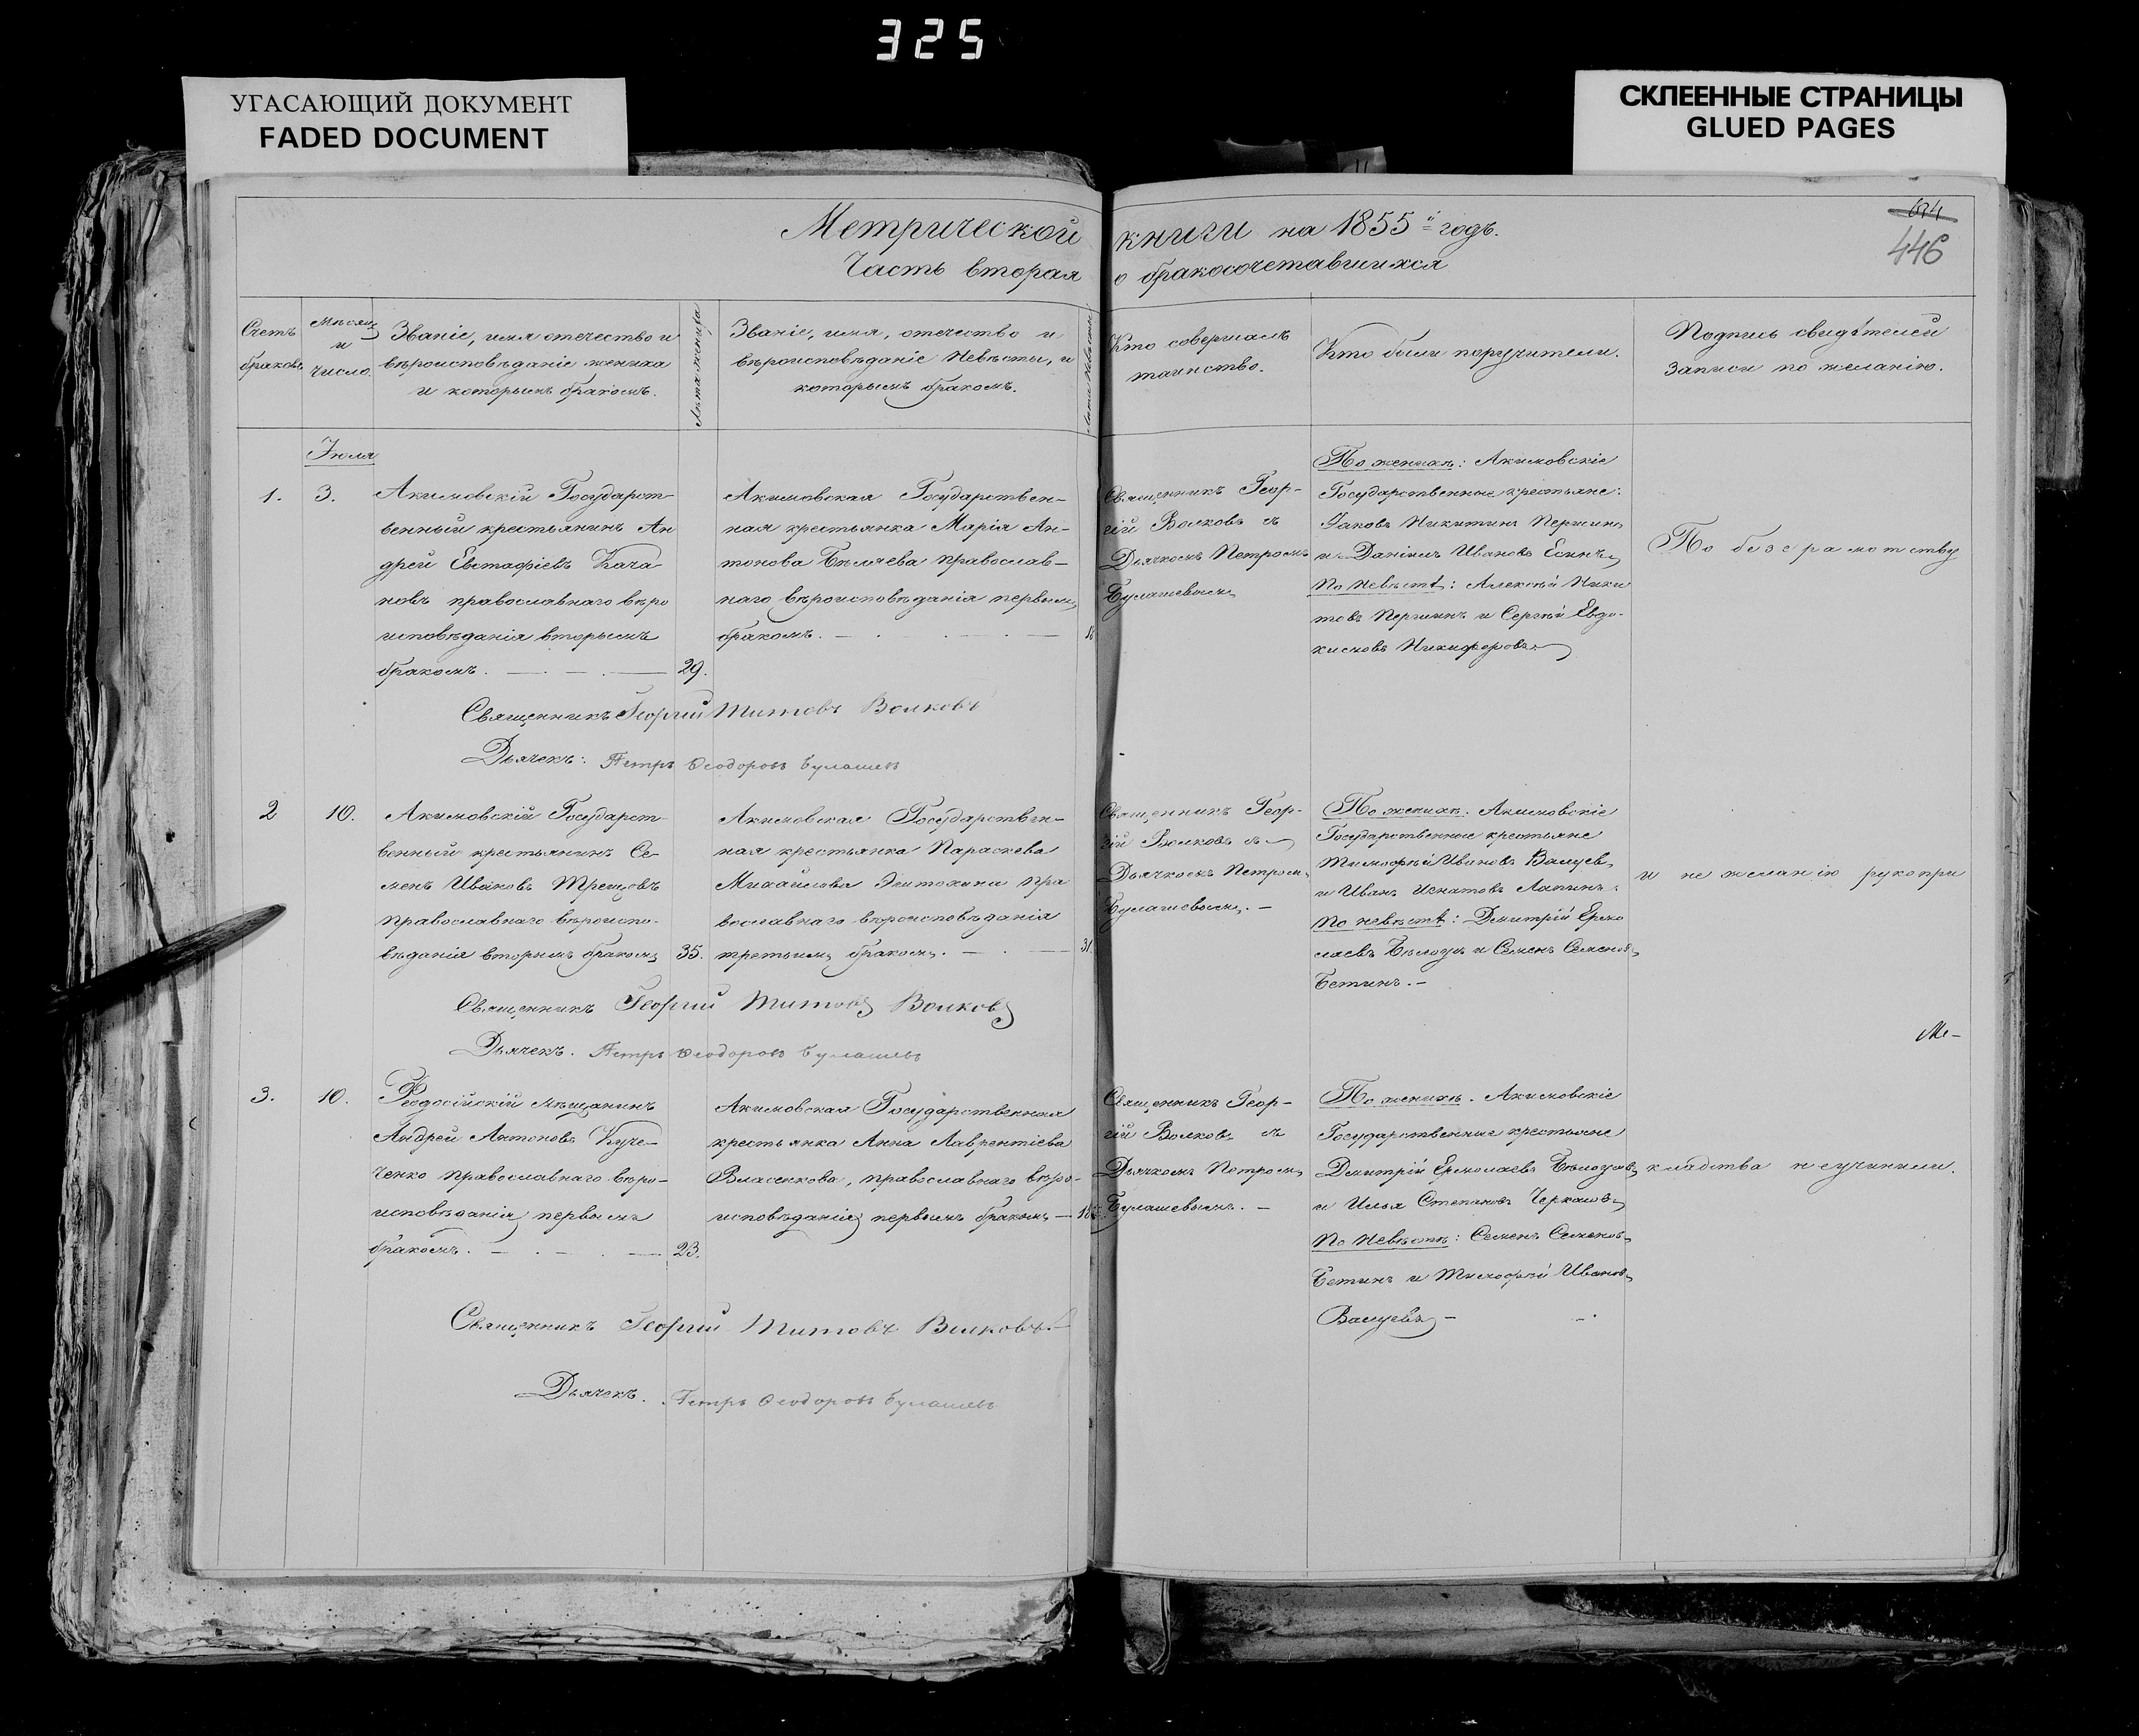 325
УГАСАЮЩИЙ ДОКУМЕНТ
FADED DOCUMENT
СКЛЕЕННЫЕ СТРАНИЦЫ
GLUED PAGES
446
Метрической книги на 1855й годъ.
Часть вторая о бракосочетавшихся
Счетъ
браковъ
Мѣсяцъ
и
число.
Званіе, имя отечество и
вѣроисповѣданіе жениха
и которымъ бракомъ.
Лѣта жениха
Званіе, имя, отечество и
вѣроисповѣданіе Невѣсты, и
которымъ бракомъ.
Лѣта Невѣсты
Кто совершалъ
таинство.
Кто были поручители.
Подпись свидѣтелей
записи по желанію.
Іюля
1. 3.
Акимовскій Государст-
венный крестьянинъ Ан
дрей Евстафіевъ Кача
новъ православнаго вѣро
исповѣданія вторымъ
бракомъ. 29.
Акимовская Государствен-
ная крестьянка Марія Ан-
тонова Бѣляева православ-
наго вѣроисповѣданія первымъ
бракомъ. 18
Священникъ Геор-
гій Волковъ съ
Дьячкомъ Петромъ
Булашевымъ
По женихѣ: Акимовскіе
Государственные крестьяне:
Іаковъ Никитинъ Першинъ
и Даніилъ Ивановъ Есинъ
По невѣстѣ: Алексѣй Ники
товъ Першинъ и Сергѣй Евдо-
кимовъ Никифоровъ
По безграмотству
Священникъ Георгий Титовъ Волковъ
Дьячекъ: Петръ Ѳеодоровъ Булашев
2 10.
Акимовскій Государст-
венный крестьянинъ Се-
менъ Ивановъ Трещовъ
православнаго вѣроиспо-
вѣданія вторымъ бракомъ 35.
Акимовская Государствен-
ная крестьянка Параскева
Михайлова пра
вославнаго вѣроисповѣданія
третьимъ бракомъ. 31.
Священникъ Геор-
гій Волковъ съ
Дьячкомъ Петромъ
Булашевымъ. -
По женихѣ. Акимовскіе
Государственные крестьяне
Тимофѣй Ивановъ Валуевъ
и Иванъ Игнатовъ Лапинъ.
По невѣстѣ: Димитрій Ермо
лаевъ и Семенъ Семеновъ
Бетинъ. -
и не желанію рукопри
Священникъ Георгий Титовъ Волковъ
Дьячекъ. Петръ Ѳеодоровъ Булашевъ
Ме-
3. 10.
Феодосійскій мѣщанинъ
Андрей Антоновъ Куче-
ченко православнаго вѣро-
исповѣданія первымъ
бракомъ. 23.
Акимовская Государственная
крестьянка Анна Лаврентіева
Власенкова, православнаго вѣро-
исповѣданія первымъ бракомъ - 18
Священникъ Геор-
гій Волковъ съ
Дьячкомъ Петромъ
Булашевымъ. -
По женихѣ. Акимовскіе
Государственные крестьяне
Димитрій Ермолаевъ
и Илья Степановъ Черкашовъ
По Невѣстѣ: Семенъ Семеновъ
Бетинъ и Тимофѣй Ивановъ
Валуевъ -
кладства неучинили.
Священникъ Георгий Титовъ Волковъ.
Дьячекъ. Петръ Ѳеодоровъ Булашевъ